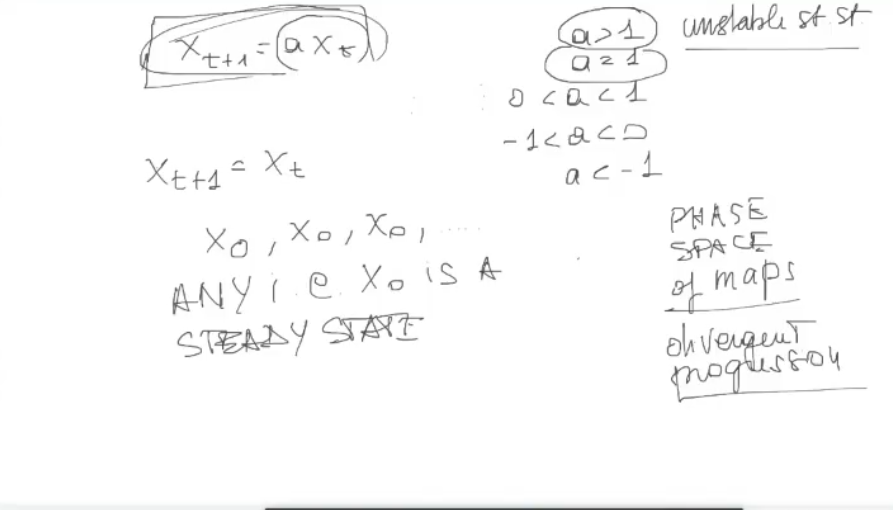 x_{t+1} = a x_t
x_{t+1} = x_t
x_0, x_0, x_0, ....
ANY i.e. x_0 is A
STEADY STATE
a>1 unstable st. st.
a=1
0<a<1
-1<a<0
a<-1
PHASE
SPACE
of maps
divergent
progression